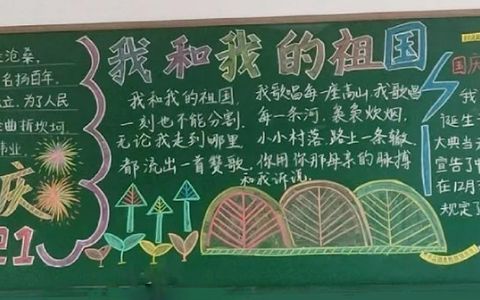 我和我的祖国
沧桑,
名扬百年,
立,为了人民
曲折坎坷
伟业,
庆
21
我和我的祖国,
一刻也不能分割,
无论我走到哪里
都流出一首赞歌.
我歌唱每一座高山,我歌唱
每一条河.袅袅炊烟,
小小村落,路上一条辙.
你用你那母亲的脉搏
和我诉说.
国庆
我
诞生
大典当
宣告了
在12月
规定了